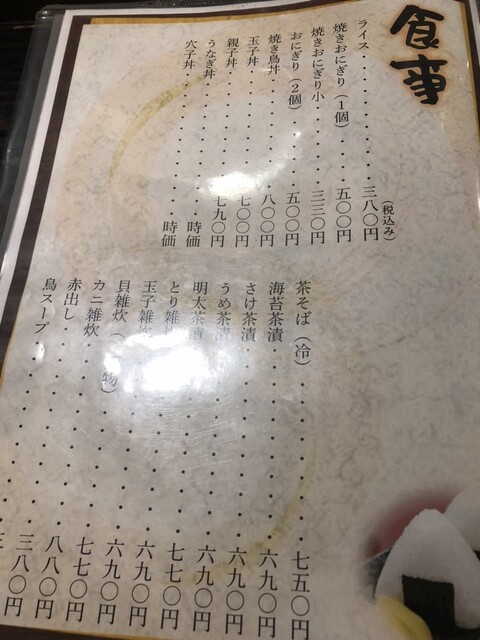 食事
(税込み)
ライス・・・・・・・・三八〇円
焼きおにぎり(1個)・・・五〇〇円
焼きおにぎり小・・・・三三〇円
おにぎり(2個)・・・・五〇〇円
焼き鳥丼・・・・・・・八〇〇円
玉子丼・・・・・・・・七〇〇円
親子丼・・・・・・・・七九〇円
うなぎ丼・・・・・・・時価
穴子丼・・・・・・・・時価
茶そば(冷)・・・・・・七五〇円
海苔茶漬・・・・・・・六九〇円
さけ茶漬・・・・・・・六九〇円
うめ茶漬・・・・・・・六九〇円
明太茶漬・・・・・・・七七〇円
とり雑・・・・・・・六九〇円
玉子雑・・・・・・・六九〇円
貝雑炊(物)・・・・・七七〇円
カニ雑炊・・・・・・・八八〇円
赤出し・・・・・・・・三八〇円
鳥スープ・・・・・・・三